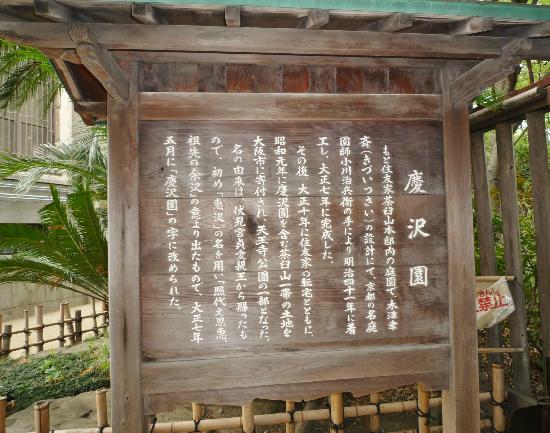 慶沢園
もと住友家茶臼山本邸内の庭園で、木津聿
斎(きづいっさい)の設計にて、京都の名庭
園師小川治兵衛の手により明治四十一年に着
工し、大正七年に完成した。
その後、大正十年に住友家の転宅とともに、
昭和元年に慶沢園を含む茶臼山一帯の土地を
大阪市に寄付され、天王寺公園の一部となった。
名の由来は、伏見宮貞愛親王から賜ったも
ので、初め、「恵沢」の名を用い「照代え恩恵、
祖先の余沢」の意より出たもので、大正七年
五月に「慶沢園」の字に改められた。
禁止